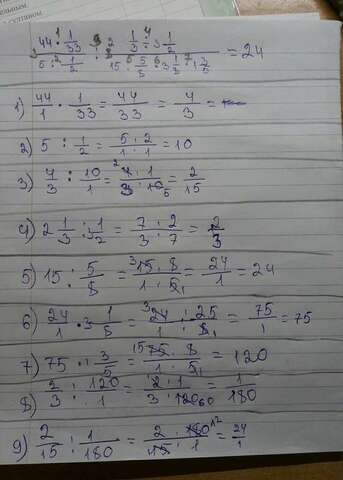 44 · 1/33 : 2 1/3 : 3 1/2
5 : 1/2 15 : 5/8 · 3 1/8 : 1 3/5 = 24
1) 44/1 · 1/33 = 44/33 = 4/3 =
2) 5 : 1/2 = 5 · 2/1 · 1 = 10
3) 4/3 : 10/1 = 4 · 1/3 · 10 = 2/15
4) 2 1/3 : 3 1/2 = 7 : 2/3 : 7 = 2/3
5) 15 : 5/8 = 15 · 8/1 · 5 = 24/1 = 24
6) 24/1 · 3 1/8 = 24 : 25/1 · 8 = 75/1 = 75
7) 75 · 1 3/5 = 75 · 8/1 · 5 = 120
8) 2/3 : 120/1 = 2 · 1/3 · 120 = 1/180
9) 2/15 : 1/180 = 2 · 180/15 · 1 = 24/1